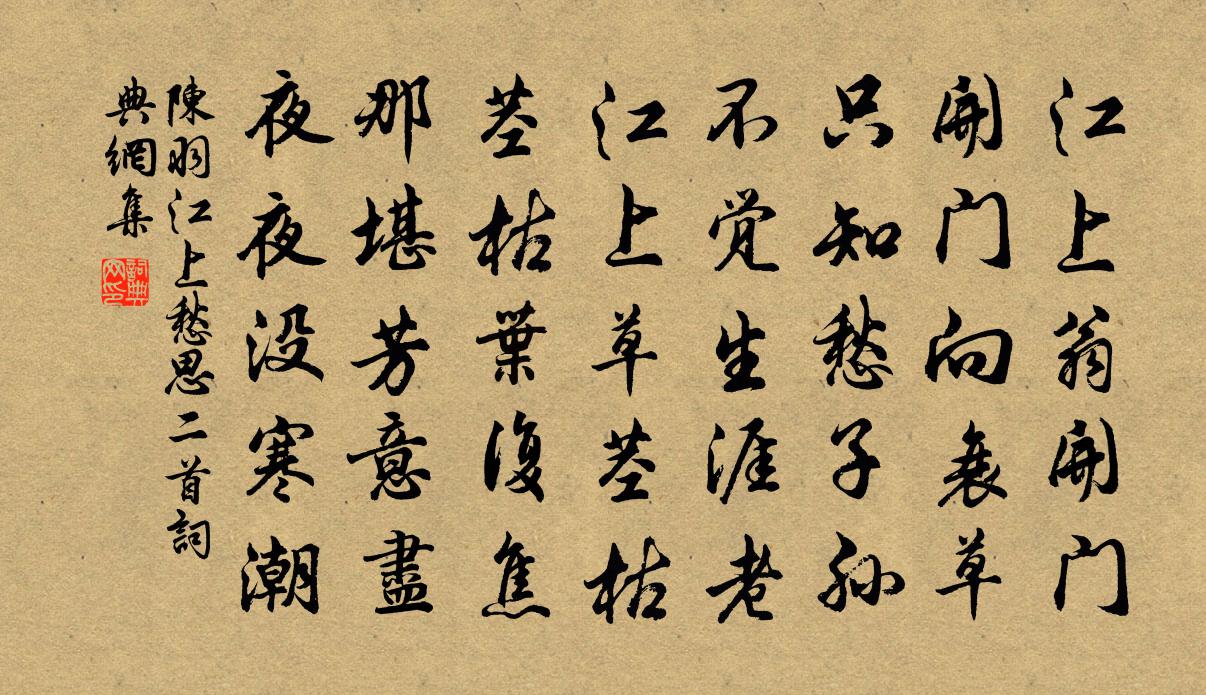 江上翁開门
開门向衰草
只知愁子孙
不觉生涯老
江上草茎枯
茎枯葉復焦
那堪芳意盡
夜夜没寒潮
陳羽江上愁思二首詞
典網集
詞典
网印